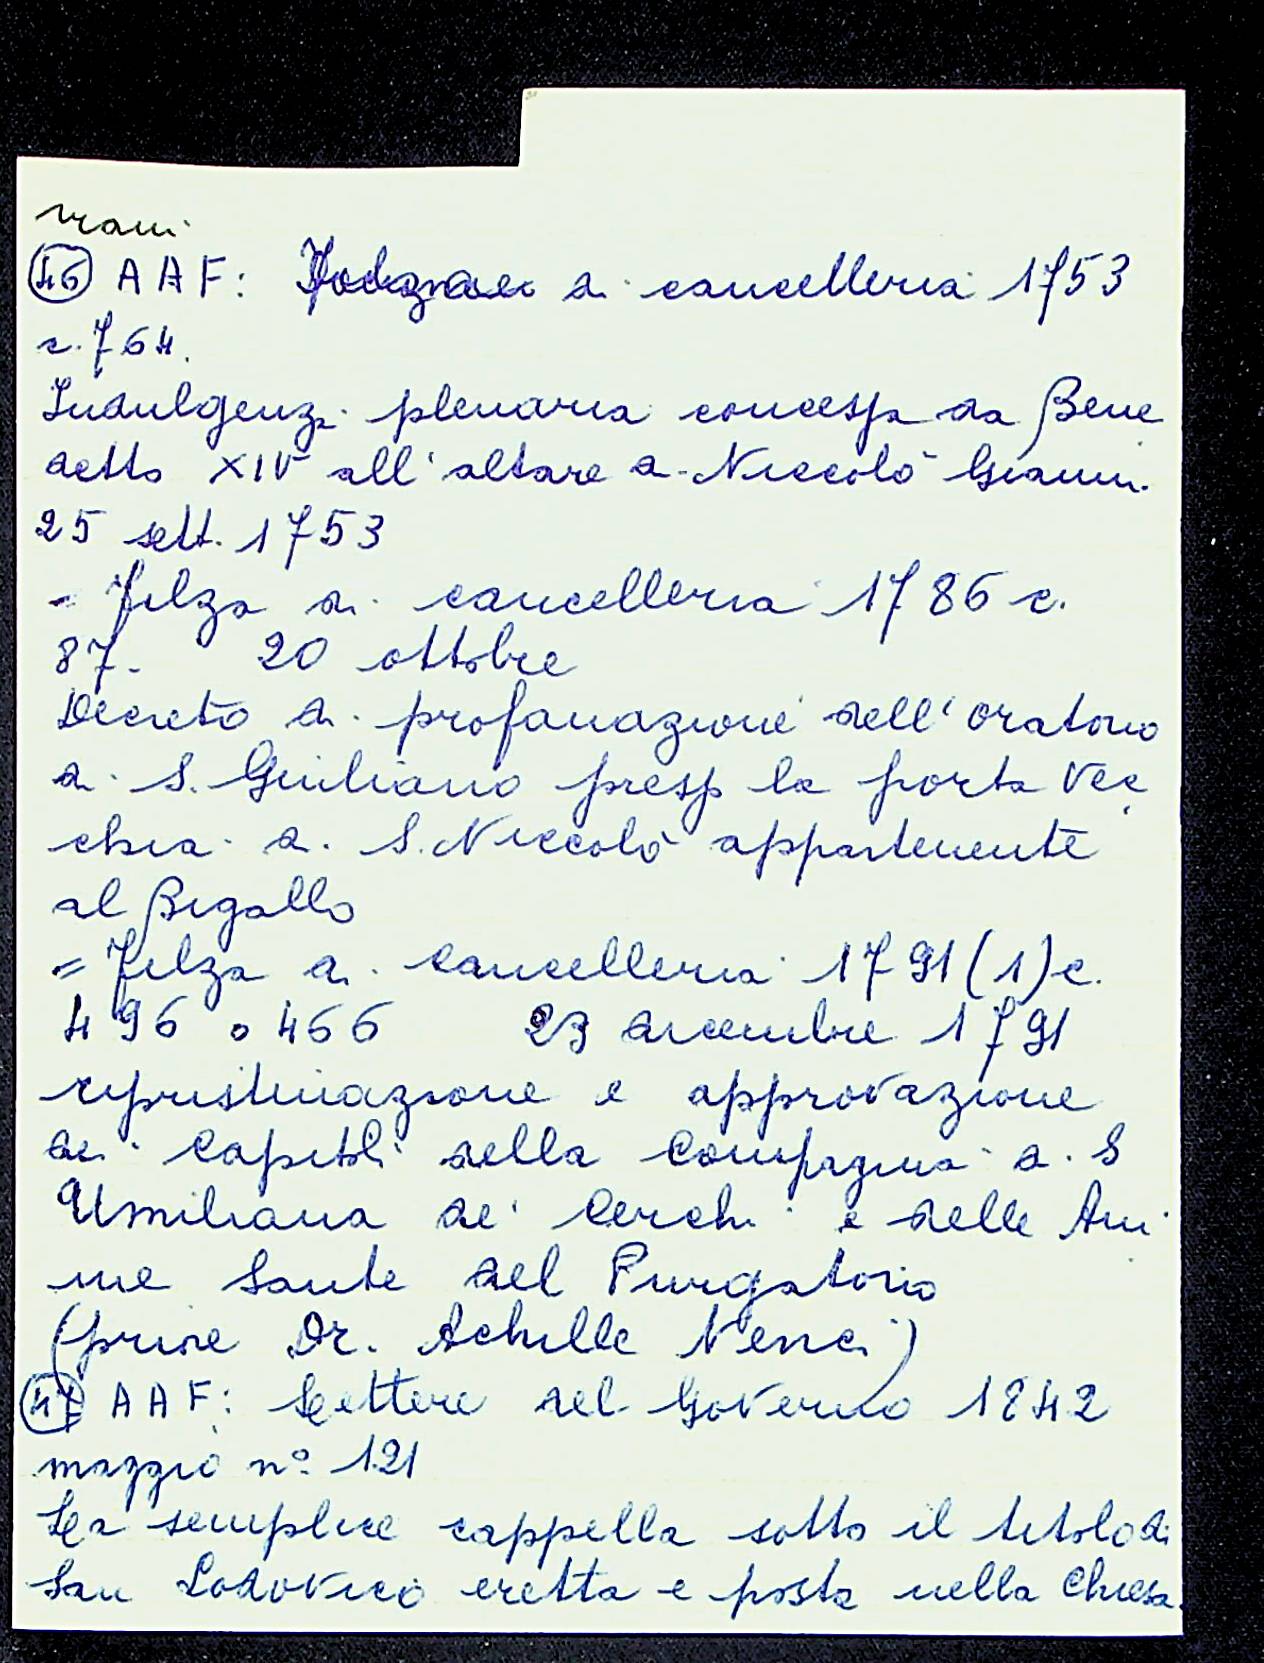 vrani
46 AAF: di cancelleria 1753
c. 764.
Indulgenza plenaria concessa da Bene
detto XIV all'altare di Niccolò Gianni
25 sett. 1753
- Filza di cancelleria 1786 c.
87. 20 ottobre
Decreto di profanazione dell'oratorio
di S. Giuliano presso la porta Vec
chia di S. Niccolò appartenente
al Bigallo
= Filza di cancelleria 1791 (1) c.
496 o 466 23 dicembre 1791
ripristinazione e approvazione
dei capitoli della Compagnia di S
Umiliana de' Cerchi e delle Ani
me Sante del Purgatorio
(priore Dr. Achille Nenci)
47 AAF: Lettere del Governo 1842
maggio n° 121
La semplice cappella sotto il titolo di
San Lodovico eretta e posta nella Chiesa